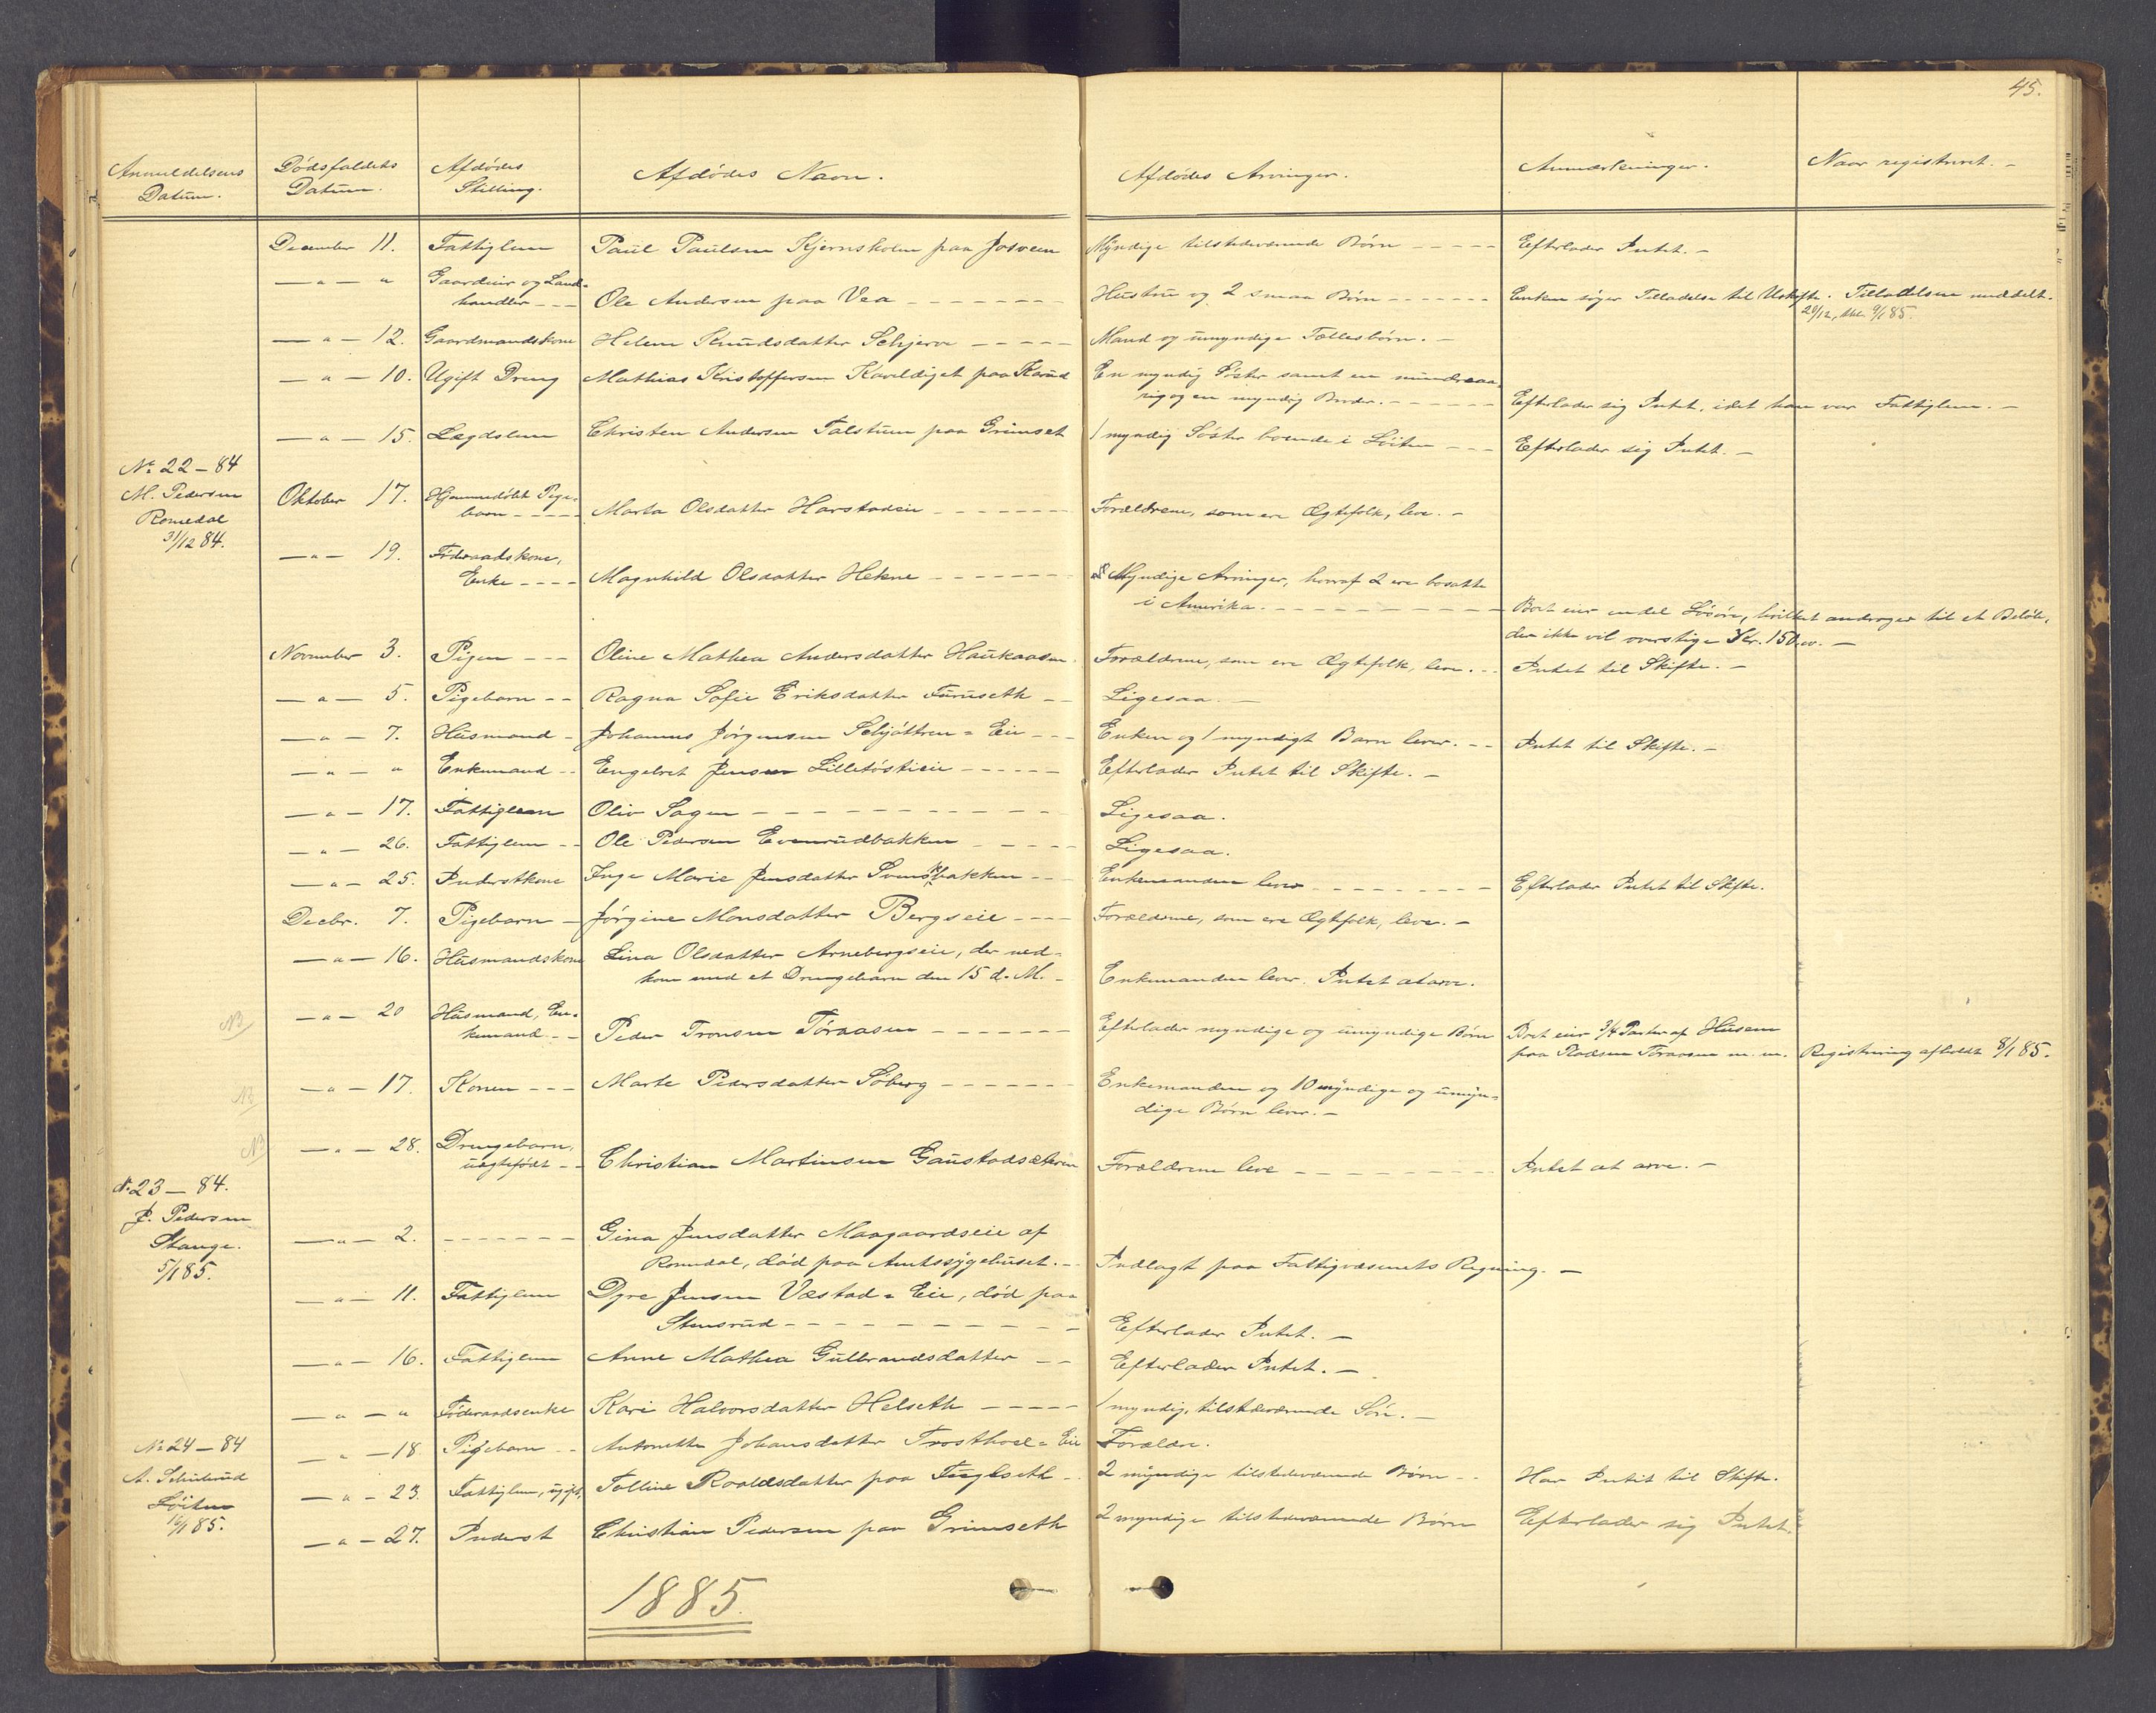 45.
Anmeldelsens Datum. Dødsfaldets Datum. Afdødes Stilling. Afdødes Navn. Afdødes Arvinger. Anmærkninger. Naar registreret. -
December 11. Fattiglem Paul Paulsen Kjernsholm paa Josveen Myndige tilstedeværende Børn - - - - - Efterlader Intet. -
— " — " Gaardeier og Land-
handler - - - Ole Andersen paa Vea - - - - - - - Hustru og 2 smaa Børn - - - - - - Enken søger Tilladelse til Uskifte. Tilladelsen meddelt.
— " — 12. Gaardmandskone Helene Knudsdatter Schjerve - - - - - Mand og umyndige Fællesbørn. -
— " — 10. Ugift Dreng Mathias Kristoffersen paa En myndig Søster samt en mindreaa-
rig og en myndig Broder. - - - - - - Efterlader sig Intet, idet han var Fattiglem. -
— " — 15. Lægdslem Christen Andersen Falstuen paa Grimset 1 myndig Søster boende i Löiten - - - Efterlader sig Intet. -
No 22 - 84
M. Pedersen
Romedal
31/12 84.
Oktober 17. Hjemmedøbt Pige-
barn - - - - Marta Olsdatter Harstadeie - - - - - - - Forældrene, som ere Ægtefolk, leve. -
— " — 19. Föderaadskone,
Enke - - - - Magnhild Olsdatter Hekne - - - - - - - Myndige Arvinger, hvoraf 2 ere bosatte
i Amerika. - - - - - - - - - - Boet eier endel Løsøre, hvilket andrager til et Beløb,
der ikke vil overstige Kr. 150,00. -
November 3. Pigen - - - Oline Mathea Andersdatter Haukaasen Forældrene, som ere Ægtefolk, leve. - - Intet til Skifte. -
— " — 5. Pigebarn - - Ragna Sofie Eriksdatter Furuseth - - Ligesaa. -
— " — 7. Husmand - Johannes Jörgensen Schjøttren = Eie - - - Enken og 1 myndigt Barn lever. - - Intet til Skifte. -
— " — " Enkemand - - Engebret Jensen Lilletøstieie - - - - - Efterlader Intet til Skifte. -
— " — 17. Fattiglem Oliv Sagen - - - - - - - - - Ligesaa.
— " — 26. Fattiglem - - Ole Pedersen Evenrudbakken - - - - Ligesaa.
— " — 25. Inderstkone Inge Marie Jensdatter - - Enkemanden lever - - - - - - - - Efterlader Intet til Skifte.
Decbr. 7. Pigebarn - Jørgine Monsdatter Bergseie - - - - Forældrene, som ere Ægtefolk, leve. -
— " — 16. Husmandskone Lina Olsdatter Arnebergseie, der ned-
kom med et Drengebarn den 15 d. M. - Enkemanden lever. Intet at arve.
NB
— " — 20 Husmand, En-
kemand - - Peder Tronsen Töraasen - - - - - - - Efterlader myndige og umyndige Børn Boet eier 3/4 Parter af Husene
paa Pladsen Töraasen m. m. Registrering afholdt 8/1 85.
NB
— " — 17. Konen - - - Marte Pedersdatter Søberg - - - - - - Enkemanden og 10 myndige og umyn-
dige Børn lever. -
NB
— " — 28. Drengebarn,
uægtefødt - - Christian Martinsen Gaustadsæteren Forældrene leve - - - - - - - - Intet at arve. -
No 23 - 84.
P. Pedersen
Stange.
5/1 85.
— " — 2. - - - - - - - Gina Jensdatter Maagaardseie af
Romedal, død paa Amtssygehuset. - - Indlagt paa Fattigvæsenets Regning. -
— " — 11. Fattiglem Dyre Jensen Væstad = Eie, död paa
Stensrud - - - - - - - - - - Efterlader Intet. -
— " — 16. Fattiglem Anne Mathea Gulbrandsdatter - - Efterlader Intet. -
— " — " Föderaadsenke Kari Halvorsdatter Helseth - - - - - 1 myndig, tilstedeværende Søn. -
No 24 - 84
A. Schulerud
Löiten
16/1 85.
— " — 18 Pigebarn - - Antonette Johansdatter Trosthoel = Eie Forældre.
— " — 23. Fattiglem, ugift, Tolline Roaldsdatter paa Fuglseth - - 2 myndige tilstedeværende Børn - - Har Intet til Skifte.
— " — 27. Inderst Christian Pedersen paa Grimseth 2 myndige tilstedeværende Børn Efterlader sig Intet.
1885.